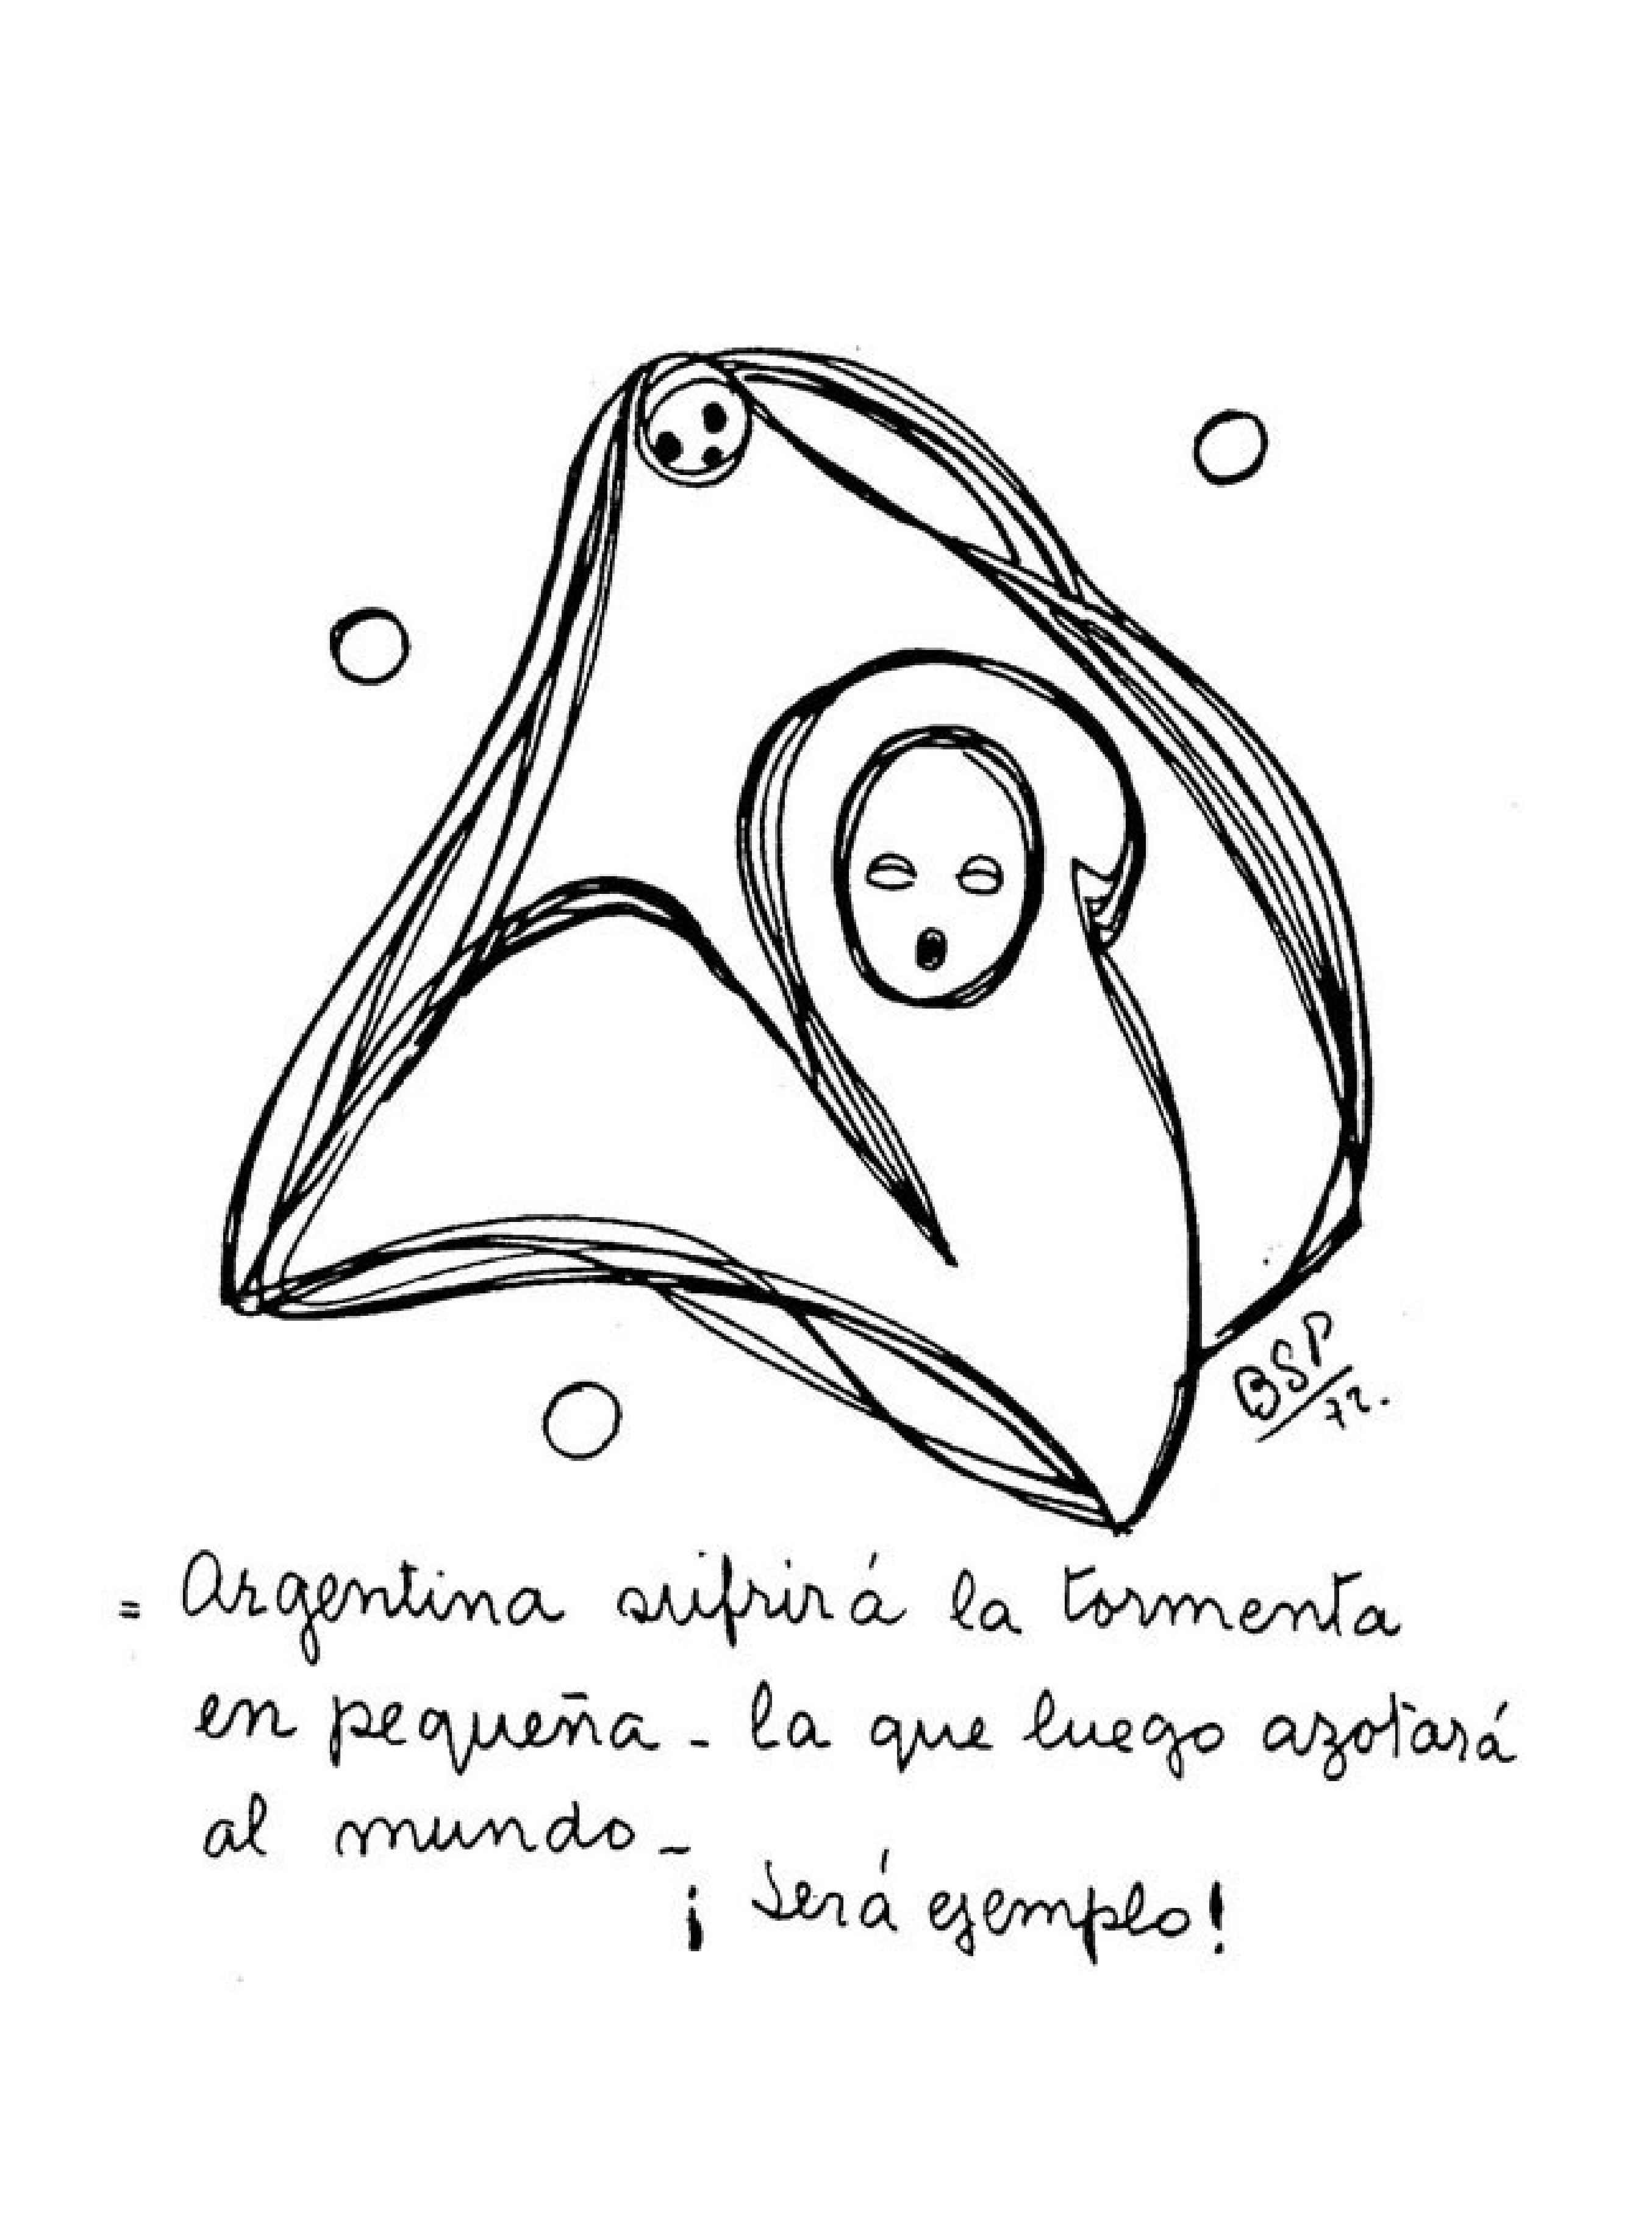 BSP
72.
= Argentina sufrirá la tormenta
en pequeña - la que luego azotará
al mundo -
¡Será ejemplo!